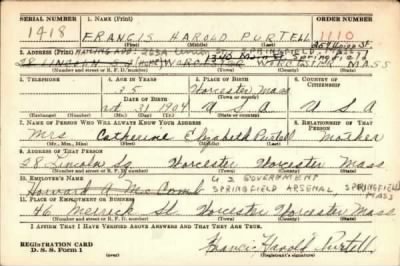 SERIAL NUMBER 1. NAME (Print) ORDER NUMBER
1418 FRANCIS HAROLD PURTELL 1110
(First) (Middle) (Last)
2. ADDRESS (Print) MAILING ADD: 265A UNION ST. SPRINGFIELD, MASS
28 LINCOLN SQ (HOME) WORCESTER WORCESTER MASS
(Number and street or R. F. D. number) (Town) (County) (State)
3. TELEPHONE 4. AGE IN YEARS 5. PLACE OF BIRTH 6. COUNTRY OF CITIZENSHIP
35 Worcester Mass
(Town or county)
DATE OF BIRTH
Oct 31 1904 U S A U S A
(Exchange) (Number) (Mo.) (Day) (Yr.) (State or country)
7. NAME OF PERSON WHO WILL ALWAYS KNOW YOUR ADDRESS 8. RELATIONSHIP OF THAT PERSON
Mrs Catherine Elizabeth Purtell Mother
(Mr., Mrs., Miss) (First) (Middle) (Last)
9. ADDRESS OF THAT PERSON
28 Lincoln Sq Worcester Worcester Mass
(Number and street or R. F. D. number) (Town) (County) (State)
10. EMPLOYER'S NAME U S GOVERNMENT
Howard A McComb SPRINGFIELD ARSENAL SPRINGFIELD MASS
11. PLACE OF EMPLOYMENT OR BUSINESS
46 Merrick St Worcester Worcester Mass
(Number and street or R. F. D. number) (Town) (County) (State)
I AFFIRM THAT I HAVE VERIFIED ABOVE ANSWERS AND THAT THEY ARE TRUE.
REGISTRATION CARD
D. S. S. Form 1 Francis Harold Purtell
(Registrant's signature)